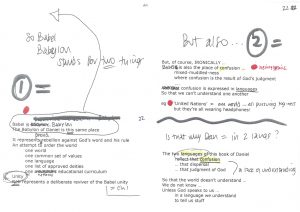 22
So Babel
Babylon
stands for two things
①=
Babel is Babylon
The Babylon of Daniel is this same place
representing rebellion against God's word and his rule
An attempt to order the world
one world
one common set of values
one language
one list of approved deities
educational curriculum
Unity
represents a deliberate revival of the Babel unity
22
But also...
②=
But, of course, IRONICALLY ...
is also the place of confusion ...
mixed-muddled-ness
where confusion is the result of God's judgment
confusion is expressed in languages
So that we can't understand one another
eg United Nations = one world ... all pursuing
but they're all wearing headphones!
Is that why Dan = in 2 langs?
The two languages of this book of Daniel
reflect that confusion
... that dispersal
... that judgement of God
of understanding
So that the world doesn't understand ...
We do not know ...
Unless God speaks to us ...
in a language we understand
to tell us stuff